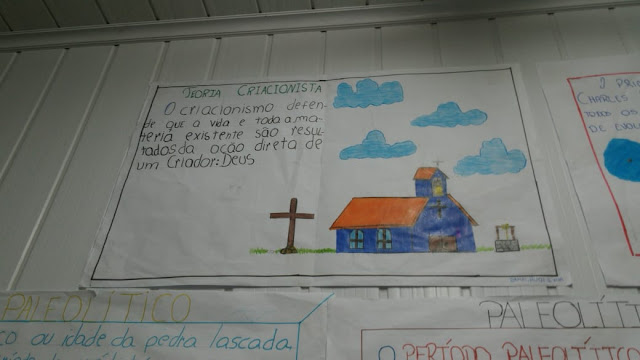 TEORIA CRIACIONISTA
O criacionismo defen-
de que a vida e toda a ma-
téria existente são resul-
tados da ação direta de
um Criador: Deus
CHARLES
TODOS OS
DE EVOLU
PALEOLÍTICO
ou idade da pedra lascada
PALEOLÍTI
O PERÍODO PALEOLÍTICO